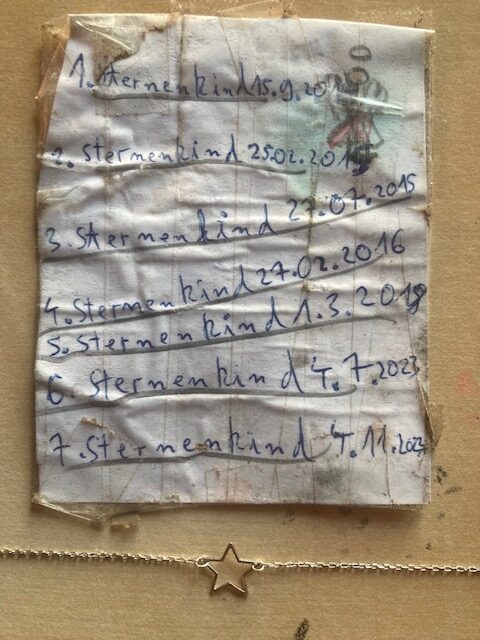 1. Sternenkind 15.9.201
2. Sternenkind 25.02.2015
3. Sternenkind 27.07.2015
4. Sternenkind 27.02.2016
5. Sternenkind 1.3.2018
6 Sternenkind 4.7.2023
7. Sternenkind 4.11.2023